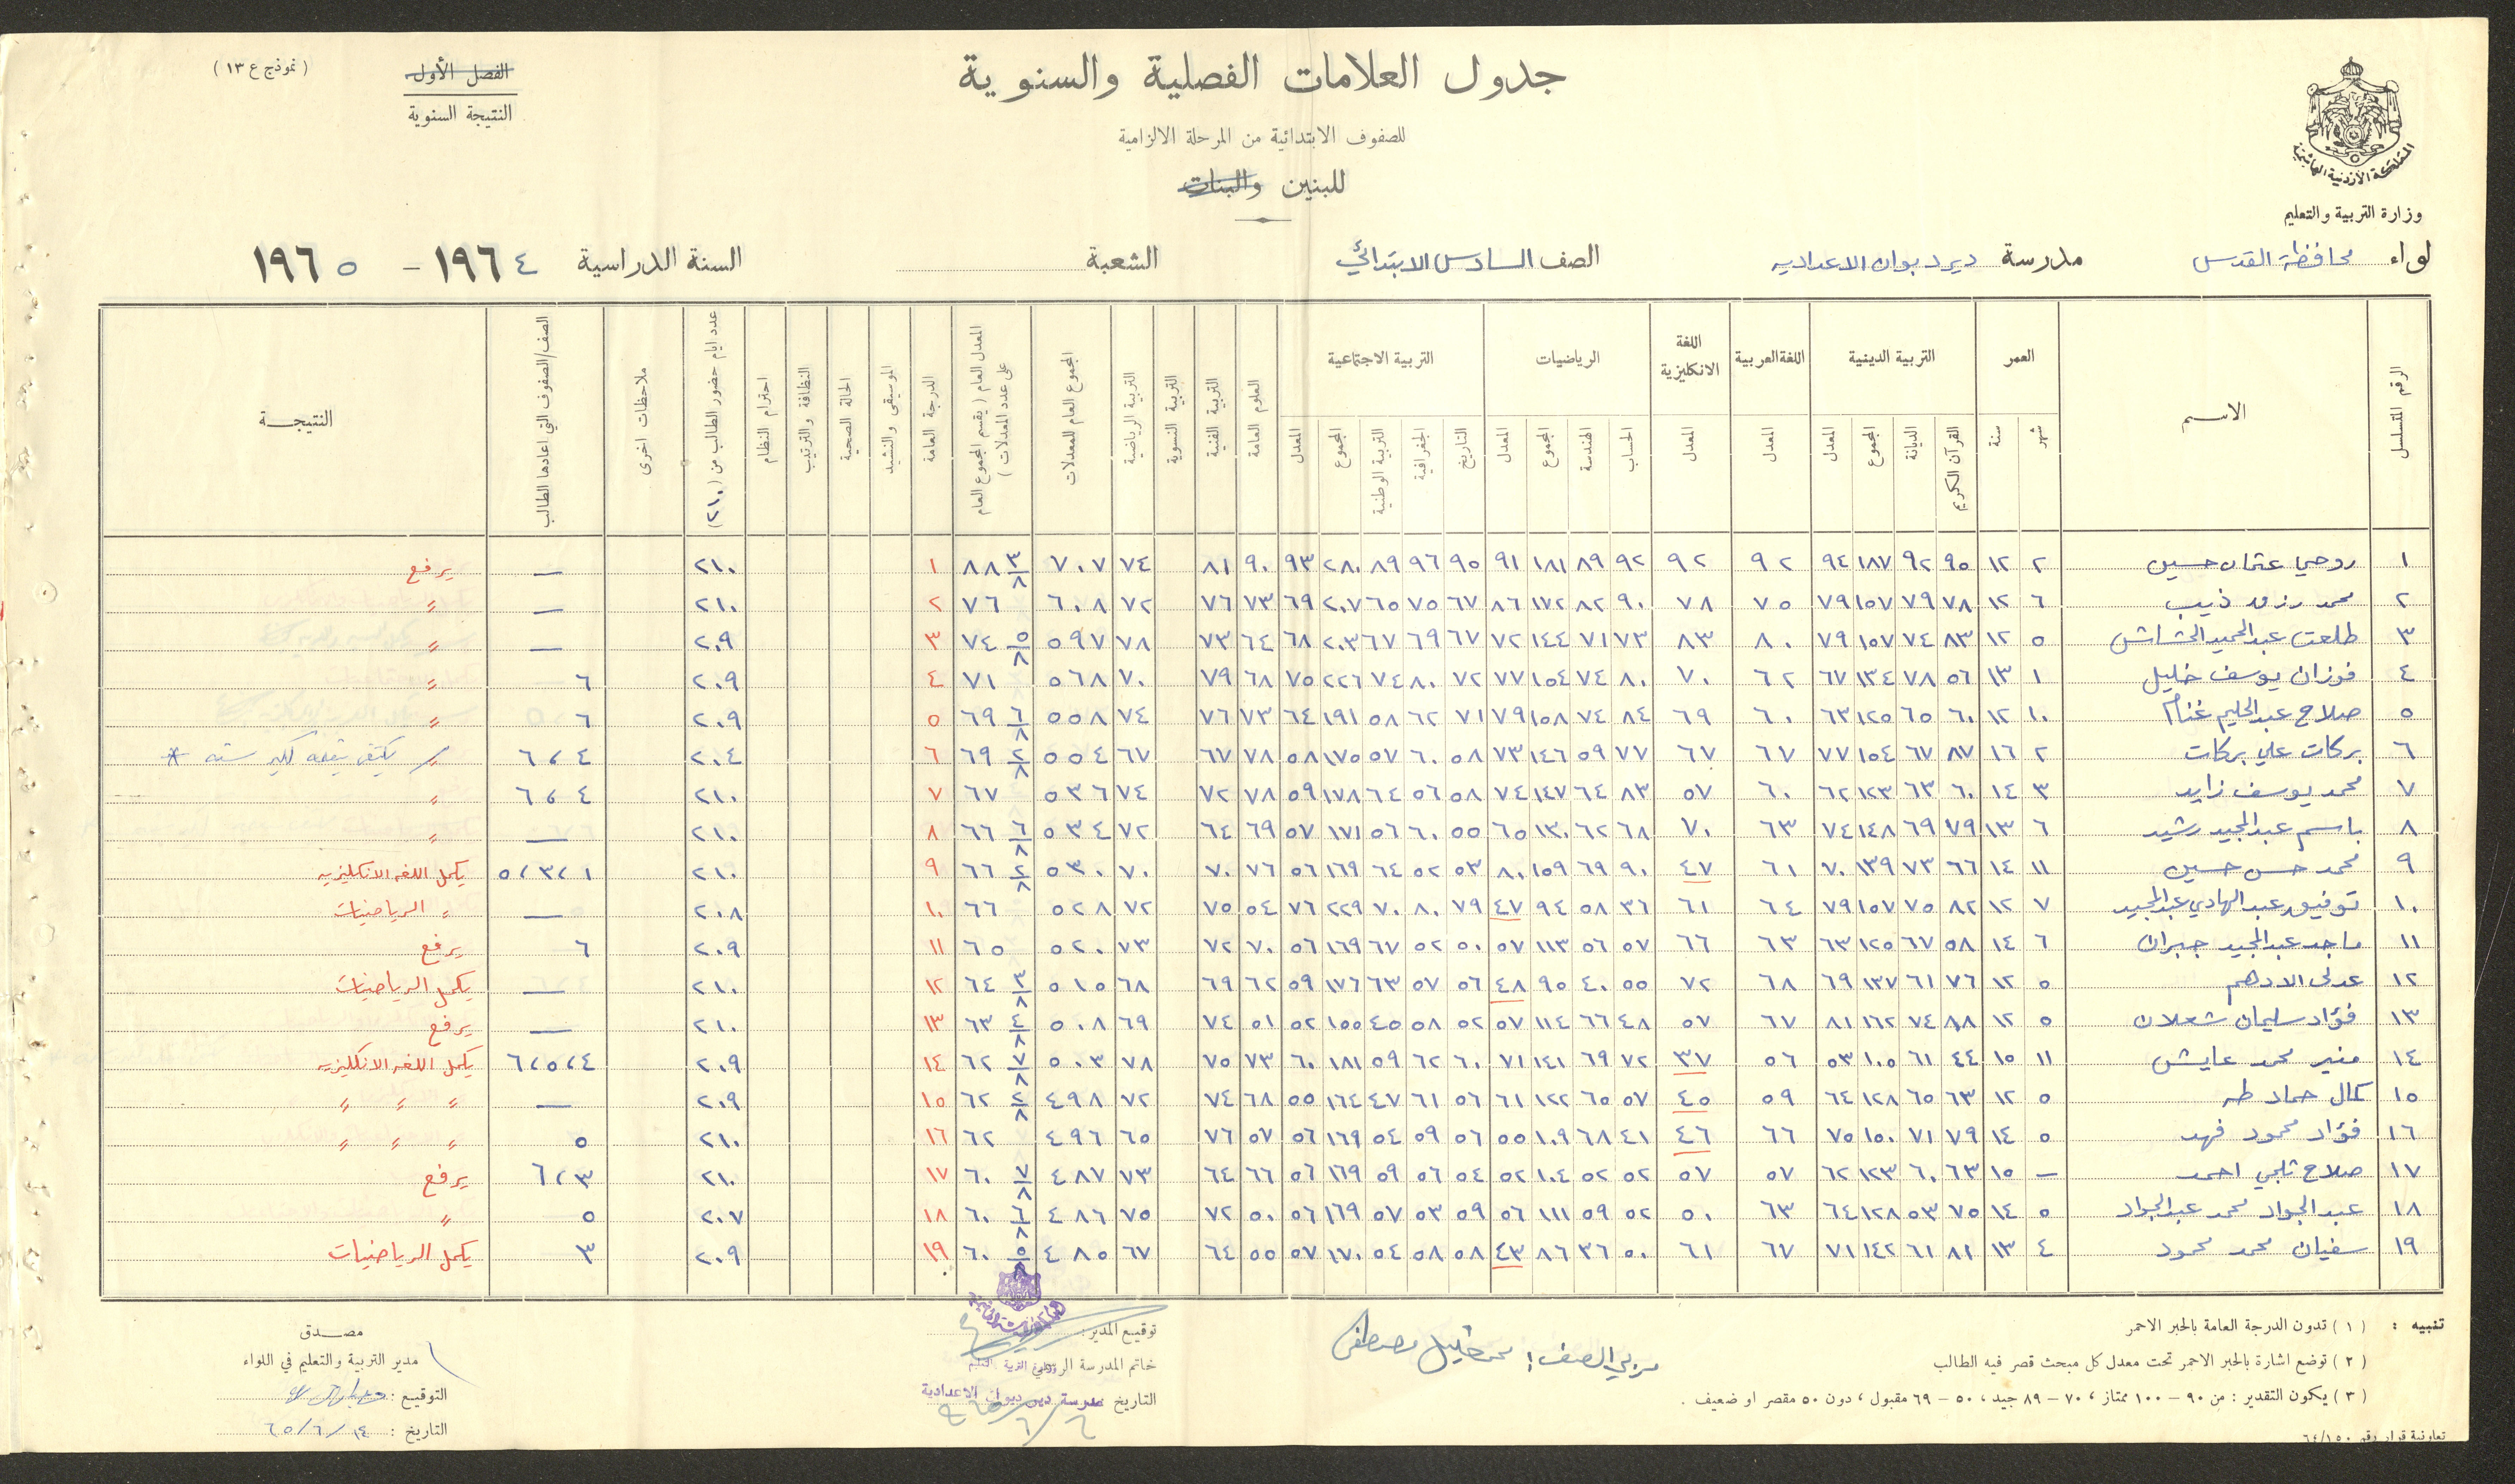 جدول العلامات الفصلية والسنوية
(نموذج ع ١٣)
الفصل الأول
النتيجة السنوية
للصفوف الابتدائية من المرحلة الالزامية
للبنين والبنات
المملكة الأردنية الهاشمية
وزارة التربية والتعليم
لواء محافظة القدس مدرسة ديردبوان الاعدادية الصف السادس الابتدائي الشعبة السنة الدراسية ١٩٦٤ - ١٩٦٥
الرقم المتسلسل الاسم العمر التربية الدينية اللغة العربية اللغة الانكليزية الرياضيات التربية الاجتماعية العلوم العامة التربية الفنية التربية النسوية التربية الرياضية المجموع العام للمعدلات المعدل العام (يقسم المجموع العام على عدد المعدلات) الدرجة العامة الموسيقى والنشيد الحالة الصحية النظافة والترتيب احترام النظام عدد ايام حضور الطالب من (٢١٠) ملاحظات اخرى الصف/الصفوف التي اعادها الطالب النتيجة
شهر سنة القرآن الكريم الديانة المجموع المعدل المعدل المعدل الحساب الهندسة المجموع المعدل التاريخ الجغرافية التربية الوطنية المجموع المعدل
١ روحي عثمان حسين ٢ ١٢ ٩٥ ٩٢ ١٨٧ ٩٤ ٩٢ ٩٢ ٩٢ ٨٩ ١٨١ ٩١ ٩٥ ٩٦ ٨٩ ٢٨٠ ٩٣ ٩٠ ٨١ ٧٤ ٧٠٧ ٨٨ ٣/٨ ١ ٢١٠ — يرفع
٢ محمد رزق ذيب ٦ ١٢ ٧٨ ٧٩ ١٥٧ ٧٩ ٧٥ ٧٨ ٩٠ ٨٢ ١٧٢ ٨٦ ٦٧ ٧٥ ٦٥ ٢٠٧ ٦٩ ٧٣ ٧٦ ٧٢ ٦٠٨ ٧٦ ٢ ٢١٠ — "
٣ طلعت عبدالحميد الخشاش ٥ ١٢ ٨٣ ٧٤ ١٥٧ ٧٩ ٨٠ ٨٣ ٧٣ ٧١ ١٤٤ ٧٢ ٦٧ ٦٩ ٦٧ ٢٠٣ ٦٨ ٦٤ ٧٣ ٧٨ ٥٩٧ ٧٤ ٥/٨ ٣ ٢٠٩ — "
٤ فوزان يوسف خليل ١ ١٣ ٥٦ ٧٨ ١٣٤ ٦٧ ٦٢ ٧٠ ٨٠ ٧٤ ١٥٤ ٧٧ ٧٢ ٨٠ ٧٤ ٢٢٦ ٧٥ ٦٨ ٧٩ ٧٠ ٥٦٨ ٧١ ٤ ٢٠٩ ٦ "
٥ صلاح عبدالحليم غنام ١٠ ١٢ ٦٠ ٦٥ ١٢٥ ٦٣ ٦٠ ٦٩ ٨٤ ٧٤ ١٥٨ ٧٩ ٧١ ٦٢ ٥٨ ١٩١ ٦٤ ٧٣ ٧٦ ٧٤ ٥٥٨ ٦٩ ٦/٨ ٥ ٢٠٩ ٦ "
٦ بركات علي بركات ٢ ١٦ ٨٧ ٦٧ ١٥٤ ٧٧ ٦٧ ٦٧ ٧٧ ٥٩ ١٤٦ ٧٣ ٥٨ ٦٠ ٥٧ ١٧٥ ٥٨ ٧٨ ٦٧ ٦٧ ٥٥٤ ٦٩ ٢/٨ ٦ ٢٠٤ ٤، ٦ "
٧ محمد يوسف زايد ٣ ١٤ ٦٠ ٦٣ ١٢٣ ٦٢ ٦٠ ٥٧ ٨٣ ٦٤ ١٤٧ ٧٤ ٥٨ ٥٦ ٦٤ ١٧٨ ٥٩ ٧٨ ٧٢ ٧٤ ٥٣٦ ٦٧ ٧ ٢١٠ ٤، ٦ "
٨ باسم عبدالمجيد رشيد ٦ ١٣ ٧٩ ٦٩ ١٤٨ ٧٤ ٦٣ ٧٠ ٦٨ ٦٢ ١٣٠ ٦٥ ٥٥ ٦٠ ٥٦ ١٧١ ٥٧ ٦٩ ٦٤ ٧٢ ٥٣٤ ٦٦ ٦/٨ ٨ ٢١٠ — "
٩ محمد حسن حسين ١١ ١٤ ٦٦ ٧٣ ١٣٩ ٧٠ ٦١ ٤٧ ٩٠ ٦٩ ١٥٩ ٨٠ ٥٣ ٥٢ ٦٤ ١٦٩ ٥٦ ٧٦ ٧٠ ٧٠ ٥٣٠ ٦٦ ٢/٨ ٩ ٢١٠ ١، ٣، ٥ يكمل اللغه الانكليزيه
١٠ توفيق عبد الهادي عبدالمجيد ٧ ١٢ ٨٢ ٧٥ ١٥٧ ٧٩ ٦٤ ٦١ ٣٦ ٥٨ ٩٤ ٤٧ ٧٩ ٨٠ ٧٠ ٢٢٩ ٧٦ ٥٤ ٧٥ ٧٢ ٥٢٨ ٦٦ ١٠ ٢٠٨ — " الرياضيات
١١ ماجد عبدالمجيد جبران ٦ ١٤ ٥٨ ٦٧ ١٢٥ ٦٣ ٦٣ ٦٦ ٥٧ ٥٦ ١١٣ ٥٧ ٥٠ ٥٢ ٦٧ ١٦٩ ٥٦ ٧٠ ٧٢ ٧٣ ٥٢٠ ٦٥ ١١ ٢٠٩ ٦ يرفع
١٢ عدلي الادهم ٥ ١٢ ٧٦ ٦١ ١٣٧ ٦٩ ٦٨ ٧٢ ٥٥ ٤٠ ٩٥ ٤٨ ٥٦ ٥٧ ٦٣ ١٧٦ ٥٩ ٦٢ ٦٩ ٦٨ ٥١٥ ٦٤ ٣/٨ ١٢ ٢١٠ — يكمل الرياضيات
١٣ فؤاد سليمان شعلان ٥ ١٢ ٨٨ ٧٤ ١٦٢ ٨١ ٦٧ ٥٧ ٤٨ ٦٦ ١١٤ ٥٧ ٥٢ ٥٨ ٤٥ ١٥٥ ٥٢ ٥١ ٧٤ ٦٩ ٥٠٨ ٦٣ ٤/٨ ١٣ ٢١٠ — يرفع
١٤ منير محمد عايش ١١ ١٥ ٤٤ ٦١ ١٠٥ ٥٣ ٥٦ ٣٧ ٧٢ ٦٩ ١٤١ ٧١ ٦٠ ٦٢ ٥٩ ١٨١ ٦٠ ٧٣ ٧٥ ٧٨ ٥٠٣ ٦٢ ٧/٨ ١٤ ٢٠٩ ٤، ٥، ٦ يكمل اللغه الانكليزيه
١٥ كمال حماد طه ٥ ١٢ ٦٣ ٦٥ ١٢٨ ٦٤ ٥٩ ٤٥ ٥٧ ٦٥ ١٢٢ ٦١ ٥٦ ٦١ ٤٧ ١٦٤ ٥٥ ٦٨ ٧٤ ٧٢ ٤٩٨ ٦٢ ٢/٨ ١٥ ٢٠٩ — " " "
١٦ فؤاد محمود فهد ٥ ١٤ ٧٩ ٧١ ١٥٠ ٧٥ ٦٦ ٤٦ ٤١ ٦٨ ١٠٩ ٥٥ ٥٦ ٥٩ ٥٤ ١٦٩ ٥٦ ٥٧ ٧٦ ٦٥ ٤٩٦ ٦٢ ١٦ ٢١٠ ٥ " " "
١٧ صلاح ثلجي احمد — ١٥ ٦٣ ٦٠ ١٢٣ ٦٢ ٥٧ ٥٧ ٥٢ ٥٢ ١٠٤ ٥٢ ٥٤ ٥٦ ٥٩ ١٦٩ ٥٦ ٦٦ ٦٤ ٧٣ ٤٨٧ ٦٠ ٧/٨ ١٧ ٢١٠ ٣، ٦ يرفع
١٨ عبدالجواد محمد عبدالجواد ٥ ١٤ ٧٥ ٥٣ ١٢٨ ٦٤ ٦٣ ٥٠ ٥٢ ٥٩ ١١١ ٥٦ ٥٩ ٥٣ ٥٧ ١٦٩ ٥٦ ٥٠ ٧٢ ٧٥ ٤٨٦ ٦٠ ٦/٨ ١٨ ٢٠٧ ٥ "
١٩ سفيان محمد محمود ٤ ١٣ ٨١ ٦١ ١٤٢ ٧١ ٦٧ ٦١ ٥٠ ٣٦ ٨٦ ٤٣ ٥٨ ٥٨ ٥٤ ١٧٠ ٥٧ ٥٥ ٦٤ ٦٧ ٤٨٥ ٦٠ ٥/٨ ١٩ ٢٠٩ ٣ يكمل الرياضيات
تنبيه : (١) تدون الدرجة العامة بالحبر الاحمر
(٢) توضع اشارة بالحبر الاحمر تحت معدل كل مبحث قصر فيه الطالب
(٣) يكون التقدير : من ٩٠ – ١٠٠ ممتاز ، ٧٠ – ٨٩ جيد ، ٥٠ – ٦٩ مقبول ، دون ٥٠ مقصر او ضعيف .
تعاونية قرار رقم ٦٤/١٥٠
مربي الصف : محمد خليل مصطفى
توقيع المدير :
خاتم المدرسة الرسمي
التاريخ
مدرسة دير ديوان الاعدادية
مصدق
مدير التربية والتعليم في اللواء
التوقيع :
التاريخ : ١٤/٦/٦٥